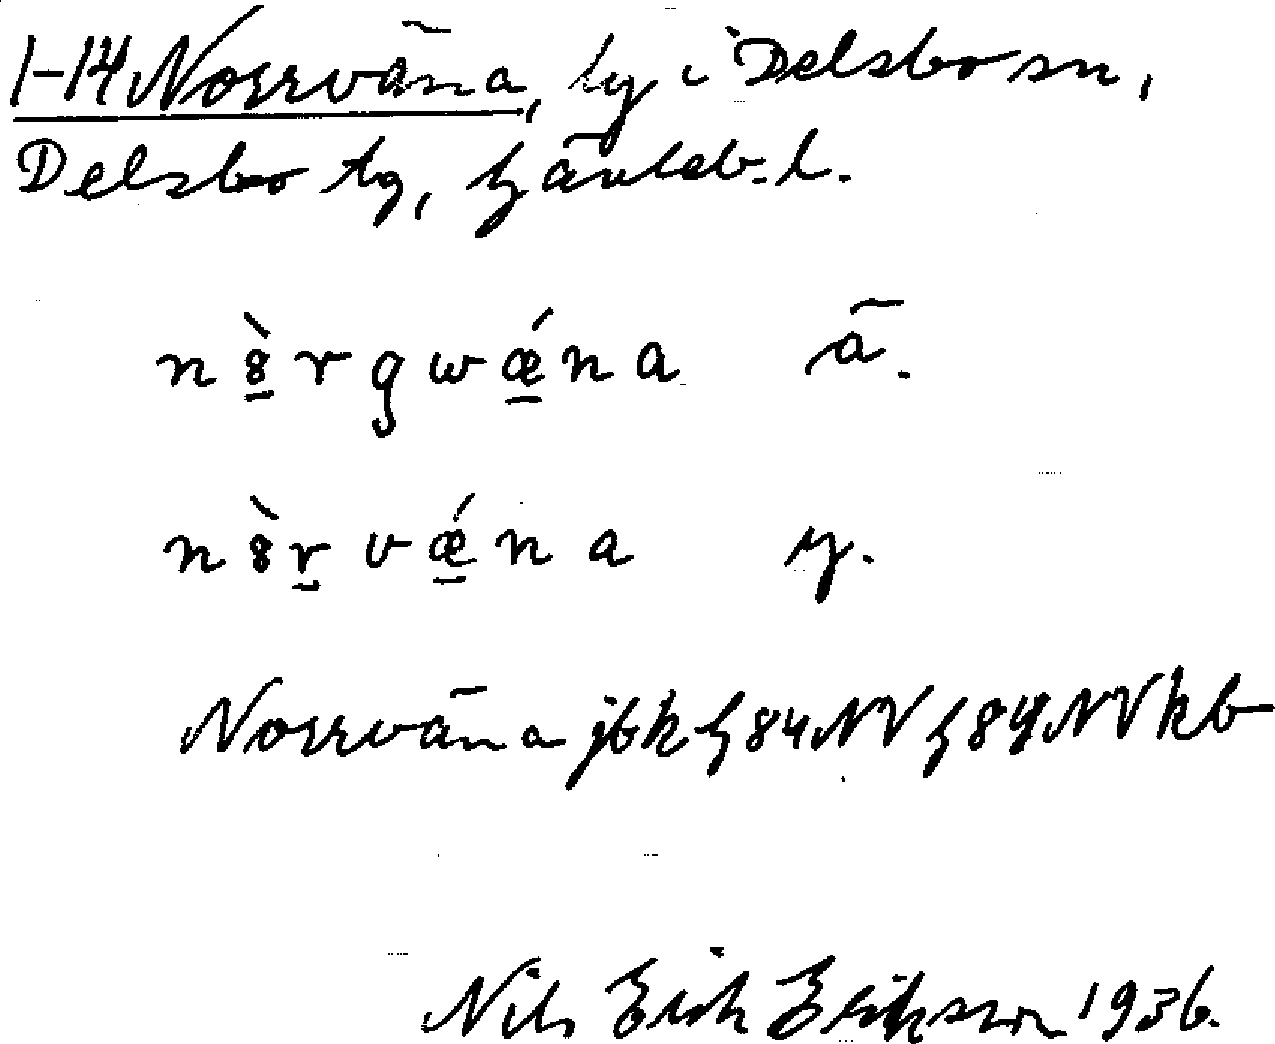 1-14 Norrväna, by i Delsbo sn,
Delsbo tg, Gävleb. l.
n8̠̀rgwǽ̠na ä.
n8̀r̠vǽ̠na y.
Norrväna jbk G84NV G84NVkb
Nils Erik Eriksson 1936.